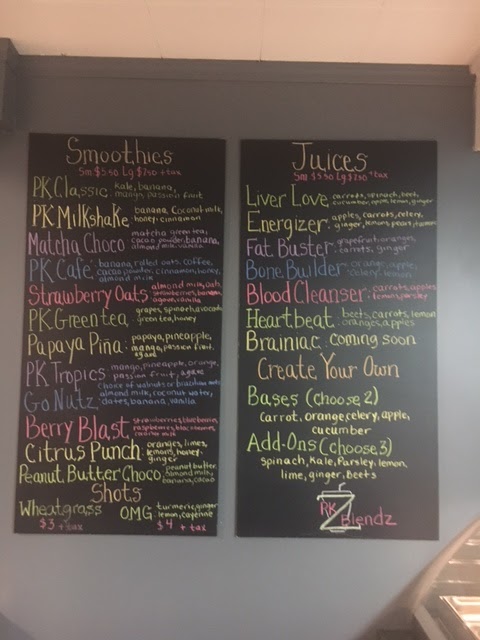 Smoothies
Sm $5.50 Lg $7.50 + tax
PK Classic: kale, banana,
mango, passion fruit
PK Milkshake: banana, coconut milk,
honey, cinnamon
Matcha Choco: matcha green tea,
cacao powder, banana,
almond milk, vanilla
PK Cafe: banana, rolled oats, coffee,
cacao powder, cinnamon, honey,
almond milk
Strawberry Oats: almond milk, oats,
strawberries, banana,
agave, vanilla
PK Green tea: grapes, spinach, avocado,
green tea, honey
Papaya Piña: papaya, pineapple,
mango, passion fruit,
agave
PK Tropics: mango, pineapple, orange,
passion fruit, agave
Go Nutz: choice of walnuts or brazilian nuts
almond milk, coconut water,
dates, banana, vanilla
Berry Blast: strawberries, blueberries,
raspberries, blackberries,
Citrus Punch: oranges, limes,
lemons, honey,
ginger
Peanut Butter Choco: peanut butter,
almond milk,
banana, cacao
Shots
Wheatgrass
$3 + tax
OMG: turmeric, ginger
lemon, cayenne
$4 + tax
Juices
Sm $5.50 Lg $7.50 + tax
Liver Love: carrots, spinach, beet,
cucumber, apple, lemon, ginger
Energizer: apples, carrots, celery,
ginger, lemons, pears,
Fat Buster: grapefruit, oranges,
carrots, ginger
Bone Builder: orange, apple,
celery, lemon
Blood Cleanser: carrots, apples
lemon, parsley
Heartbeat: beets, carrots, lemon
oranges, apples
Brainiac: coming soon
Create Your Own
Bases (choose 2)
carrot, orange, celery, apple,
cucumber
Add-Ons (choose 3)
spinach, Kale, Parsley, lemon,
lime, ginger, beets
PK
Blendz